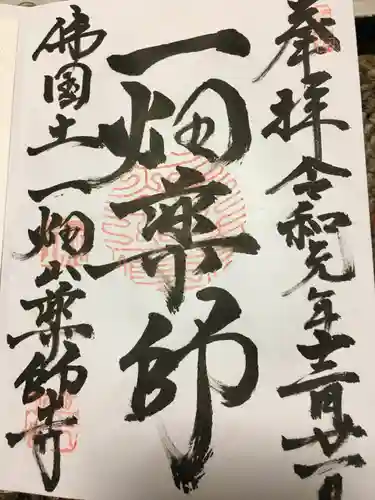 奉拝 令和元年十二月廿一日
一畑薬師
佛国土 一畑山薬師寺